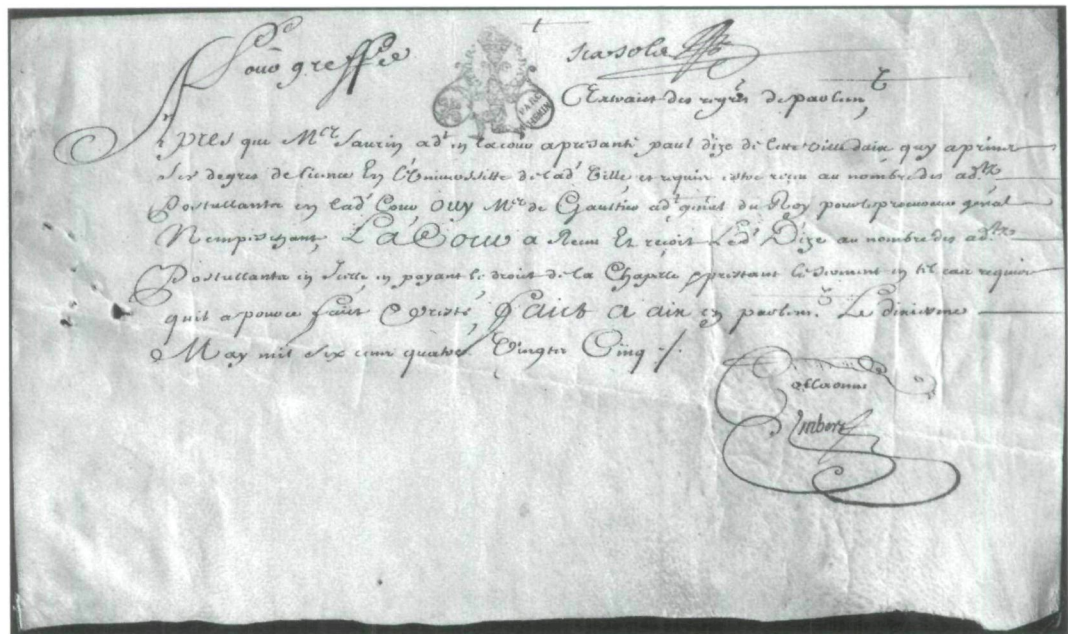 Pour greffe
Extraict des regres de parlem̃t
Apres que Mer Saurin adt en la cour a pnsanté paul dize de cette ville daix quy a prins
ses degres de licence En l'Universsitte de ladt Ville et requis estre receu au nombre des adts
Postullants en ladt Cour OUY Mer de Gaultier adt gñeral du Roy pour le procureur general
N'empeschant, LA COUR a Receu Et reçoit Ledt Dize au nombre des adts
Postullants en Icelle en payant le droit de la Chapelle & prestant le serment en tel cas requis
quil a pnté faict Presté, Faict a aix en parlem̃t. Le dixiesme
May mil six cens quatre Vingts Cinq
PARCHEMIN
Collaonné
Imbert